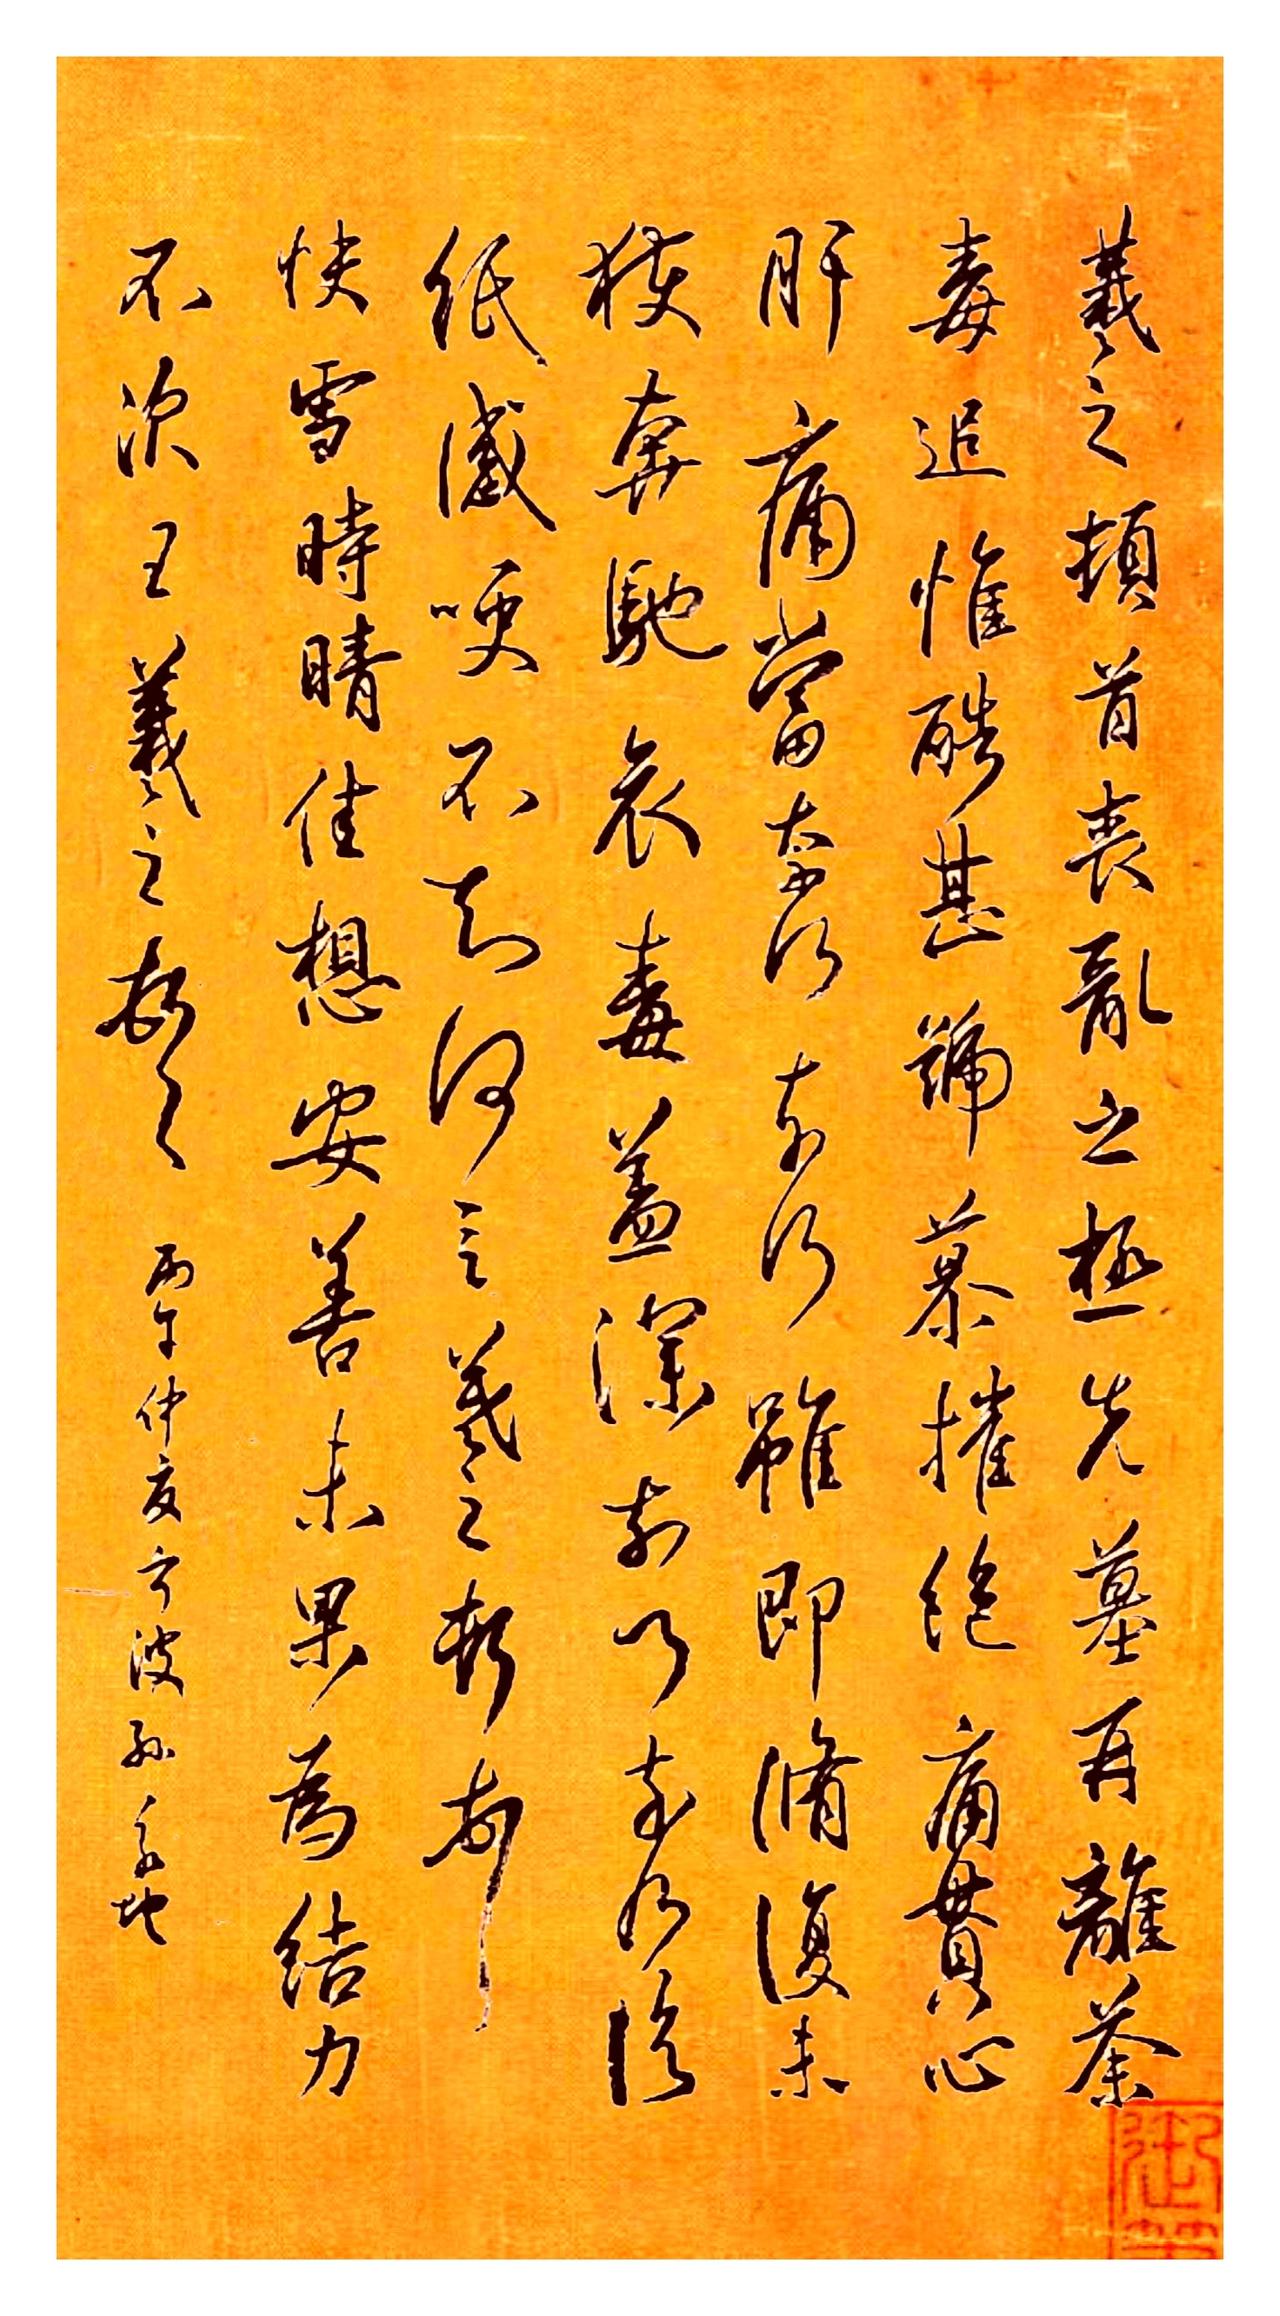 羲之頓首喪亂之極先墓再離荼
毒追惟酷甚號慕摧絕痛貫心
肝痛當奈何奈何雖即脩復未
獲奔馳哀毒益深奈何奈何臨
紙感哽不知何言羲之頓首
快雪時晴佳想安善未果為結力
不次王羲之頓首
丙午仲夏宁波孙